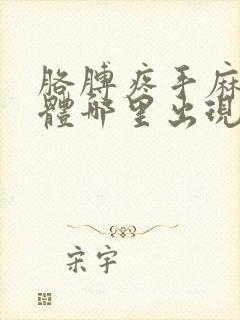 胳膊疼手麻
體哪里出現
宋宇